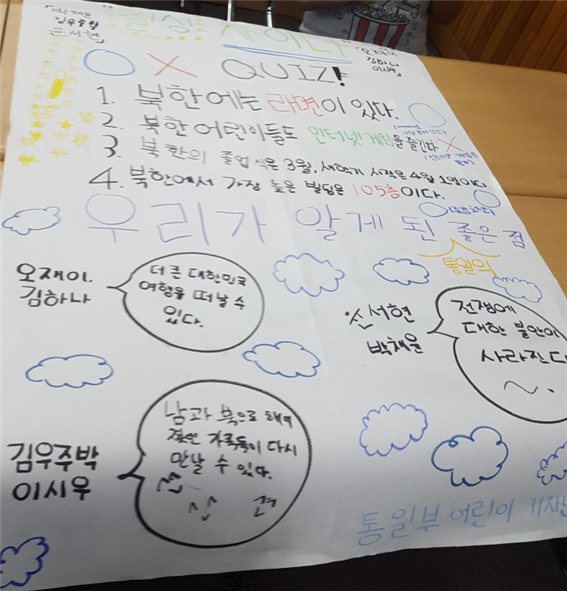 김우주박
윤서현
김하나
이시우
O X QUIZ!
1. 북한에는 라면이 있다. O
2. 북한 어린이들도 인터넷게임을 즐긴다 X
3. 북한의 졸업식은 3월, 새학기 시작은 4월 1일이다.
4. 북한에서 가장 높은 빌딩은 105층이다.
우리가 알게 된 좋은 점
통일의
오재이.
김하나
더 큰 대한민국
여행을 떠날 수
있다.
신서현
박채윤
전쟁에
대한 불안이
사라진다
남과 북으로 헤어
가족들이 다시
만날 수 있다.
김우주박
이시우
통일부 어린이 기자단